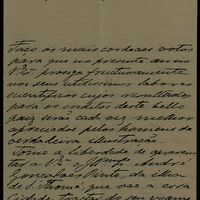 Faço os mais cordeaes votos
para que no presente anno
V. Exª prosiga fructuosamente
nos seus utilissimos labores
scientificos cujos resultados
para os creditos deste bello
paiz será cada vez melhor
apreciados pelos homens de
verdadeira illustração.
Tomo a liberdade de apresen-
tar a V. Exª o Snr. André
Gonçalves Pinto, da ilha
de S. Thomé, que vae a essa
cidade